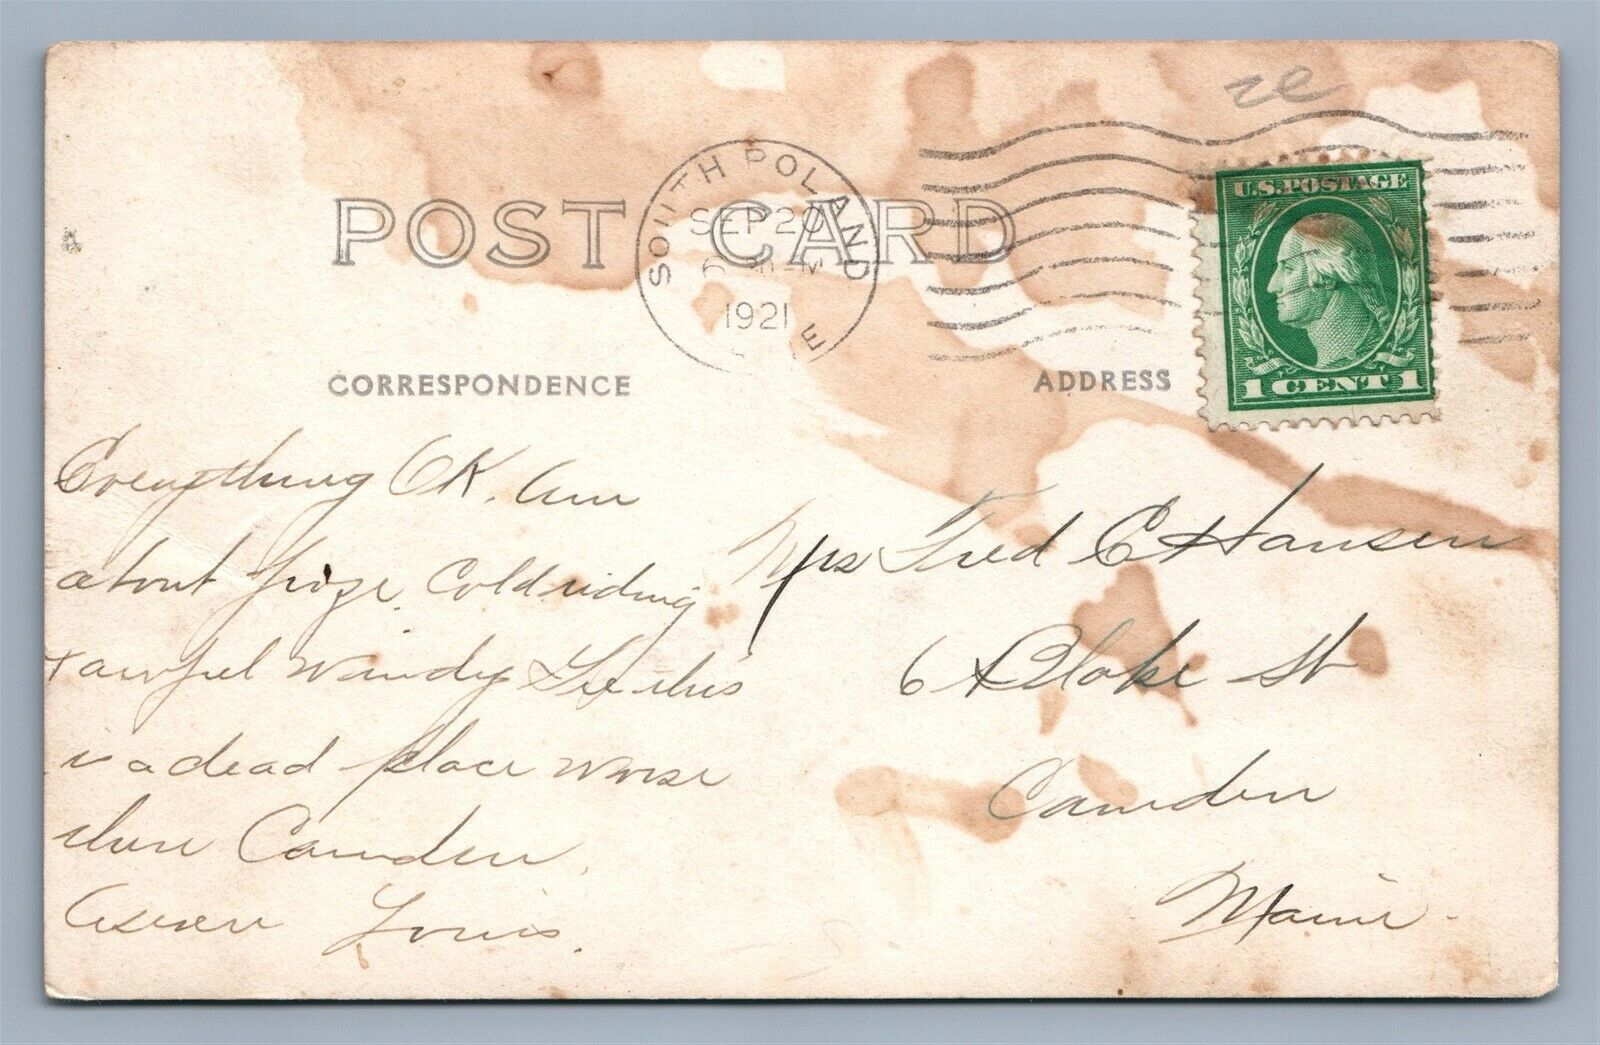 ze
SOUTH POLAND
SEP 20
6 30 M
1921
E
U.S. POSTAGE
1 CENT 1
POST CARD
CORRESPONDENCE
ADDRESS
Everything OK. Am
about froze. Cold riding
+ awful windy Gee this
is a dead place worse
than Camden.
Louis.
Mrs Fred C Hansen
6 Blake St
Camden
Maine